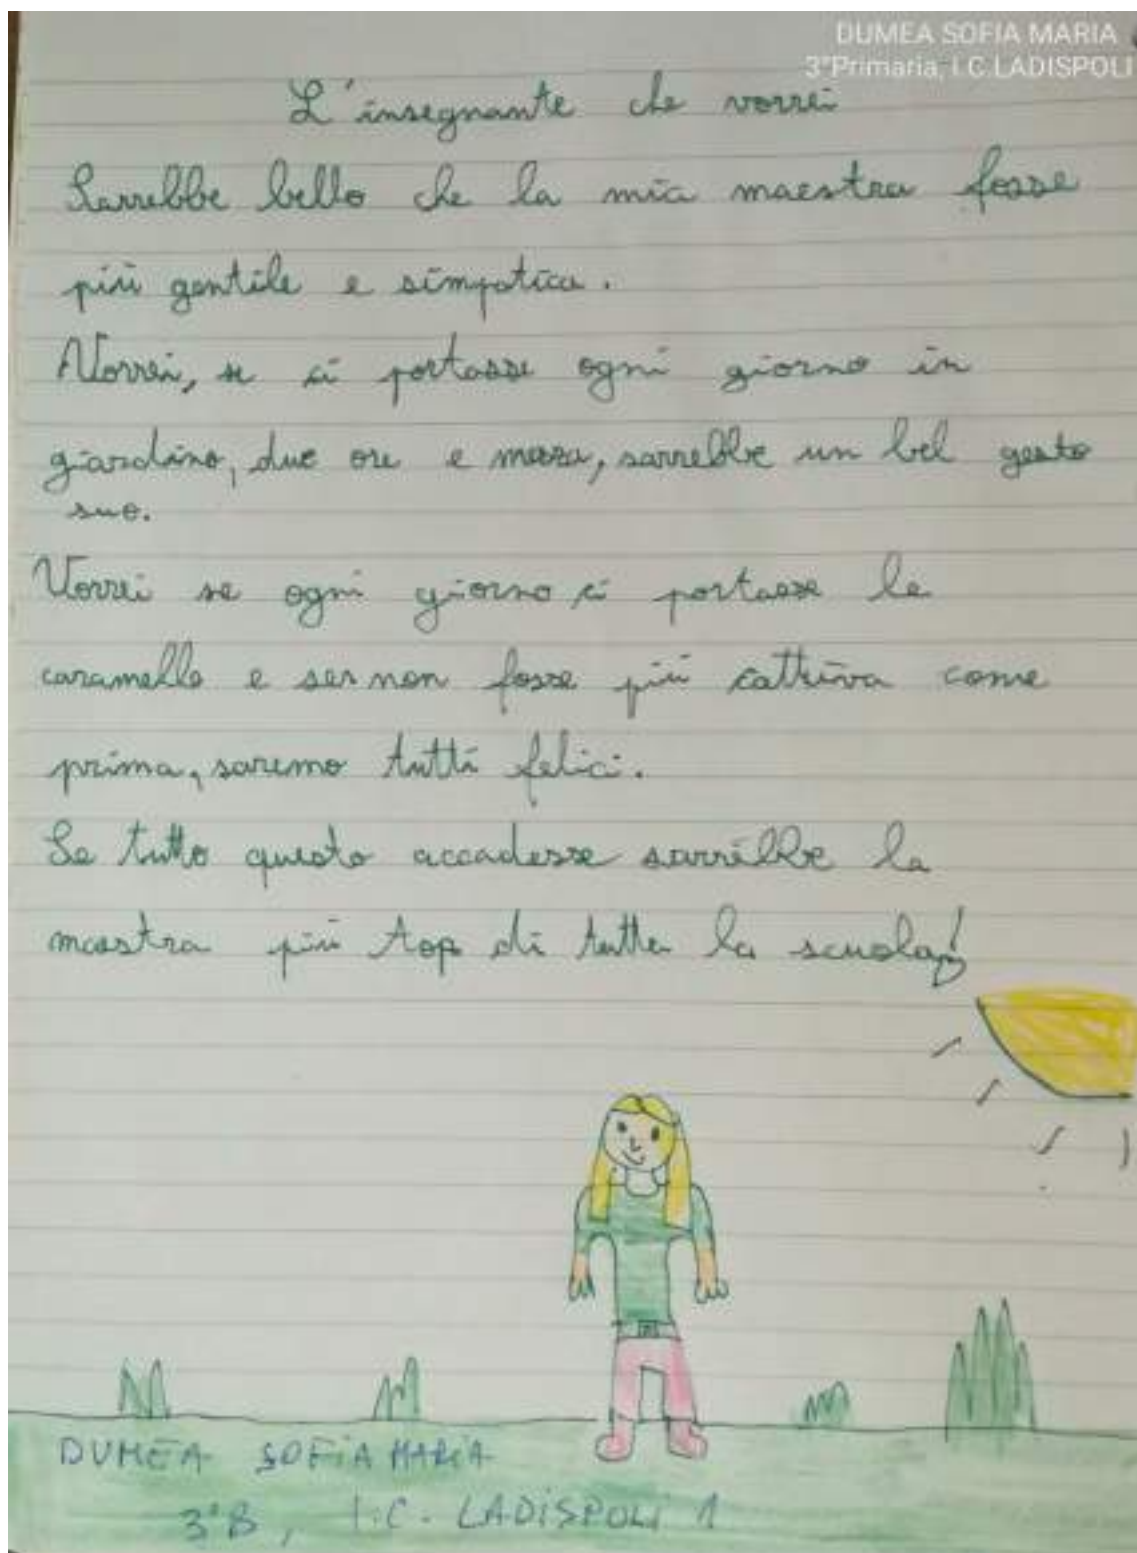 DUMEA SOFIA MARIA
3°Primaria, I.C LADISPOLI
L'insegnante che vorrei
Sarrebbe bello che la mia maestra fosse
più gentile e simpatica.
Vorrei, se ci portasse ogni giorno in
giardino, due ore e mezza, sarrebbe un bel gesto
suo.
Vorrei se ogni giorno ci portasse le
caramelle e se non fosse più cattiva come
prima, saremo tutti felici.
Se tutto questo accadesse sarrebbe la
maestra più top di tutta la scuola!
DUMEA SOFIA MARIA
3°B, I.C. LADISPOLI 1